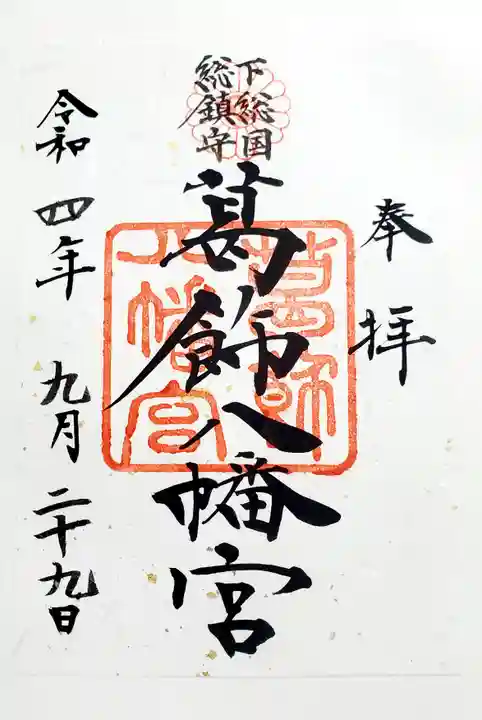 奉拝
下総国
総鎮守
葛飾八幡宮
葛飾
八幡宮
令和四年九月二十九日